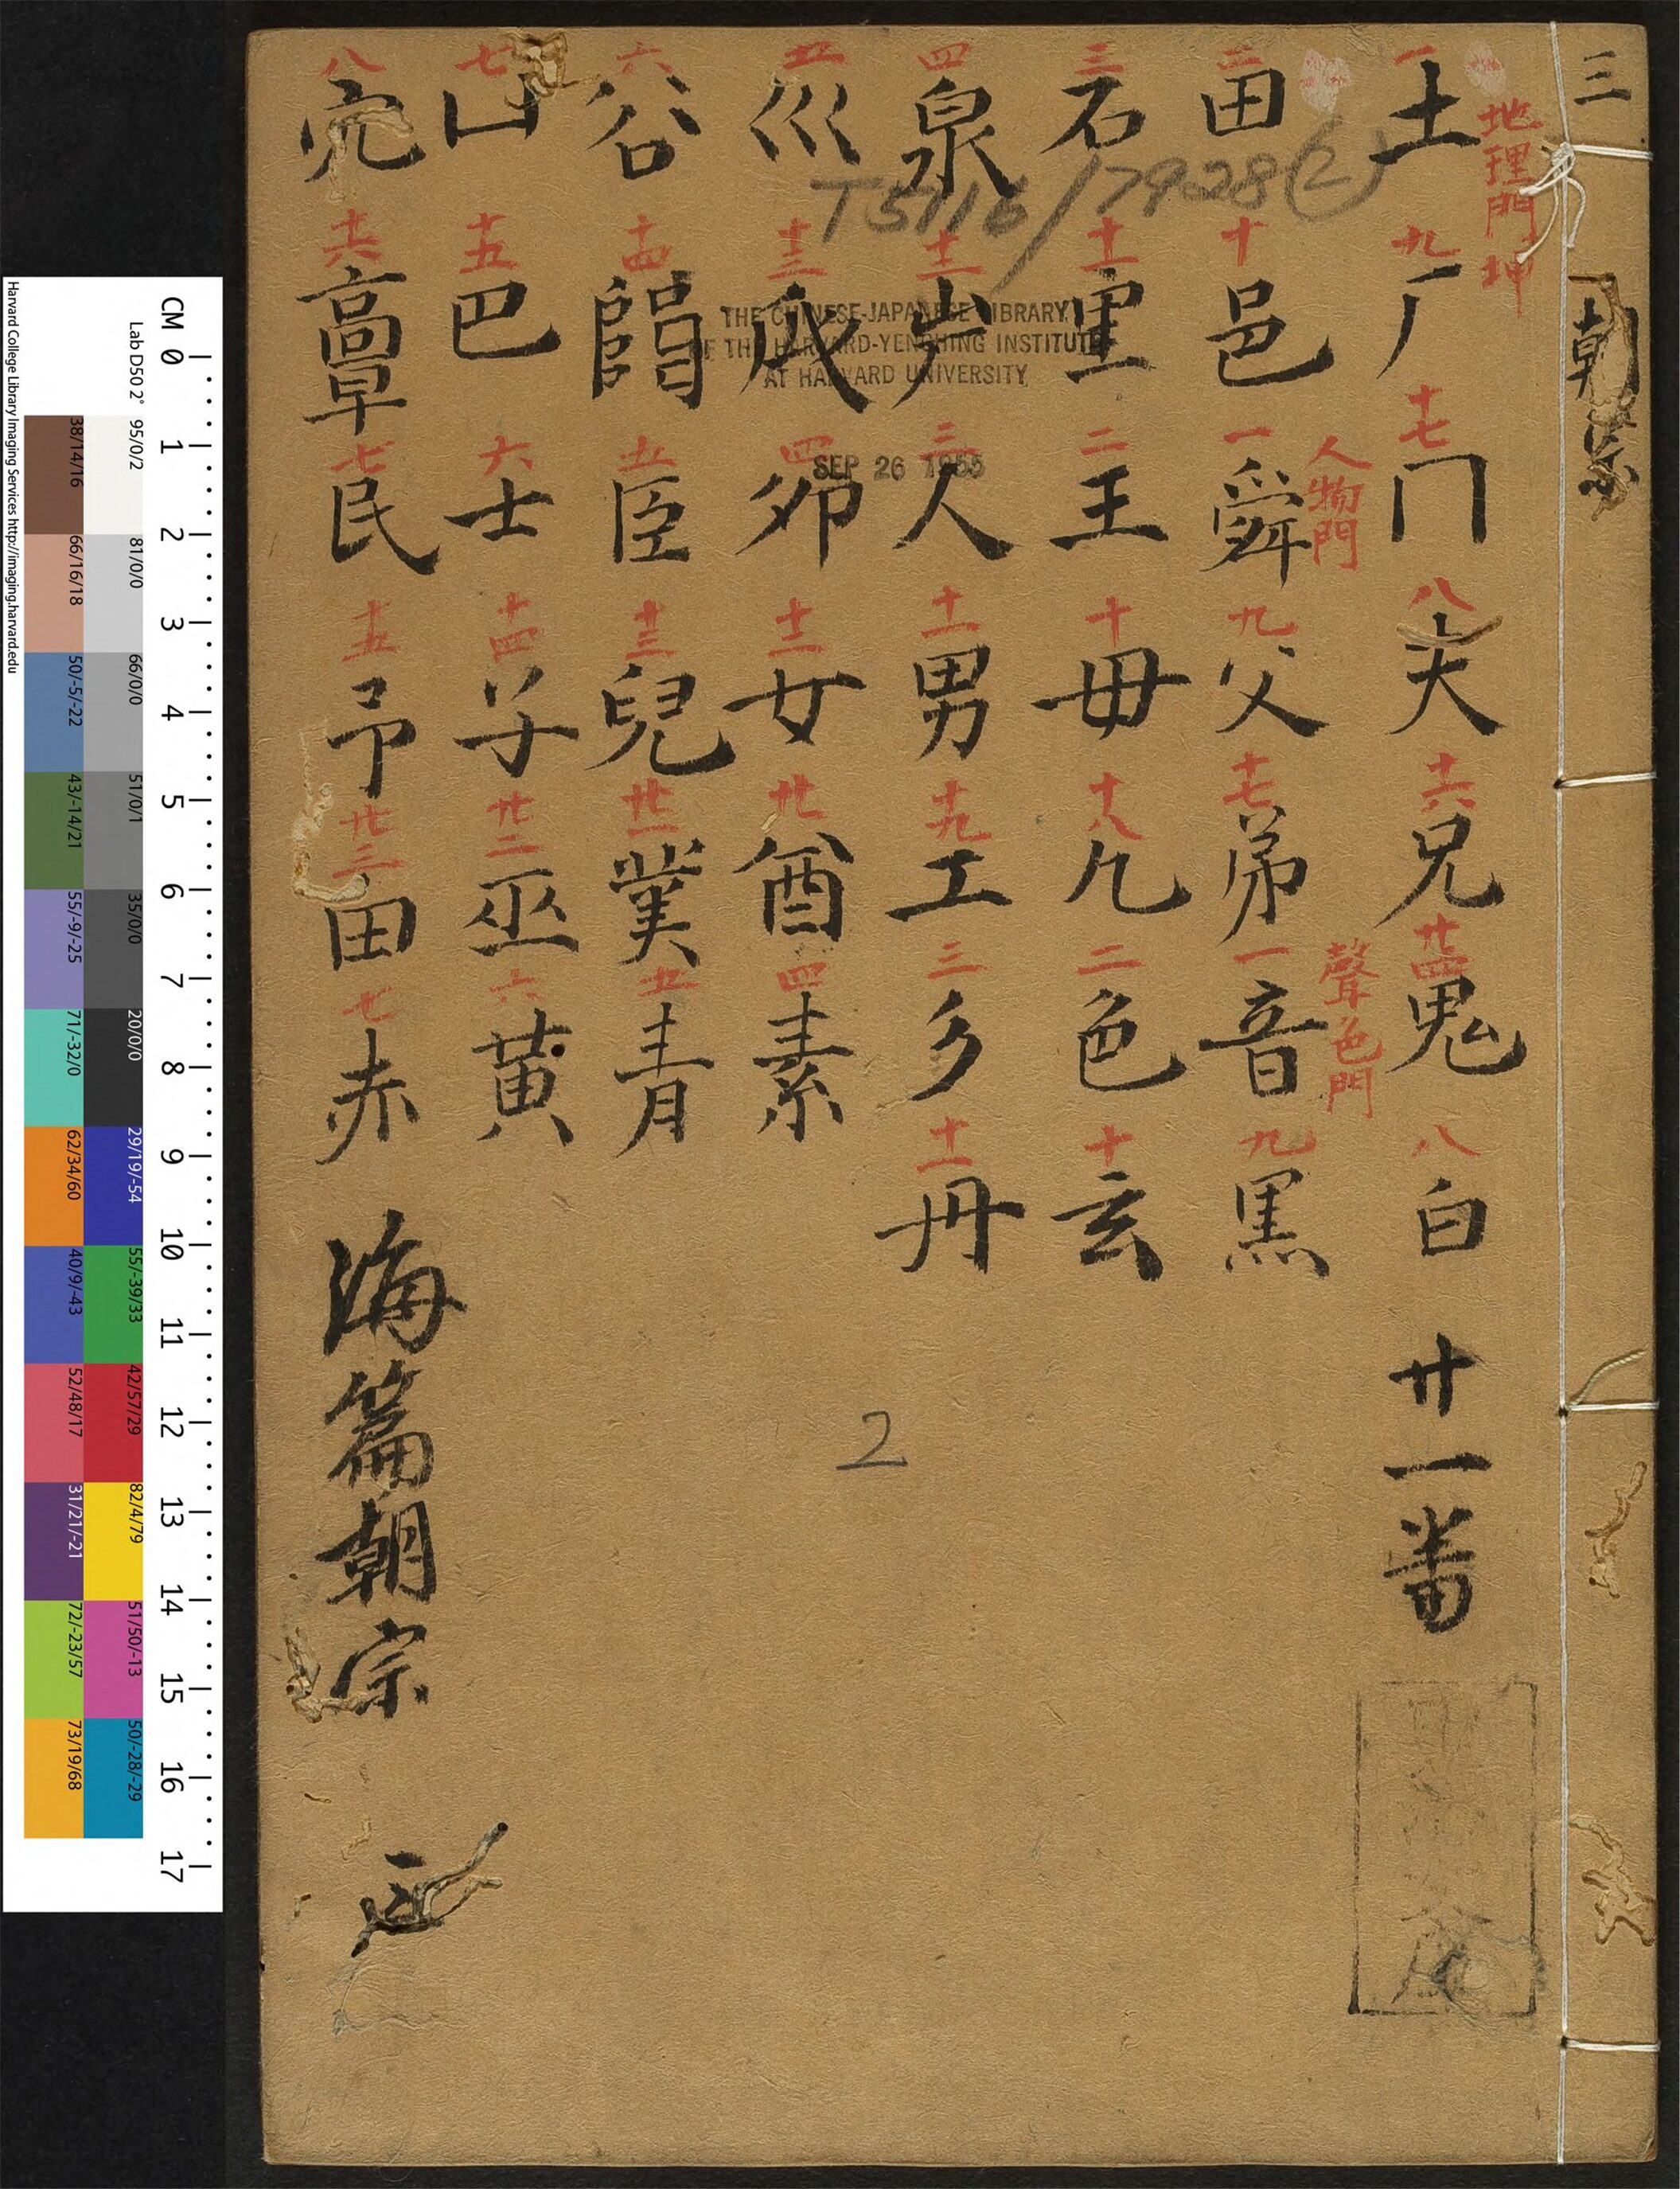 三 朝宗
地理門 坤
一 土 二 田 三 石 四 泉 五 巛 六 谷 七 山 八
九 厂 十 邑 十一 里 十二 十三 𠂢 十四 十五 巴 十六
十七 冂 人物門 一 舜 二 王 三 人 四 卯 五 臣 六 士 七 民
八 夫 九 父 十 母 十一 男 十二 女 十三 兒 十四 子 十五 予
十六 兄 十七 弟 十八 凡 十九 工 廿 酋 廿一 菐 廿二 巫 廿三 甶
廿四 鬼 聲色門 一 音 二 色 三 彡 四 素 五 青 六 黃 七 赤
八 白 九 黒 十 玄 十一 丹
廿一番
海篇朝宗
T5116/7928(2)
THE CHINESE-JAPANESE LIBRARY
OF THE HARVARD-YENCHING INSTITUTE
AT HARVARD UNIVERSITY
SEP 26 1955
2
CM 0 1 2 3 4 5 6 7 8 9 10 11 12 13 14 15 16 17
Lab D50 2° 95/0/2 81/0/0 66/0/0 51/0/1 35/0/0 20/0/0 29/19/-54 55/-39/33 42/57/29 82/4/79 51/50/-13 50/-28/-29
38/14/16 66/16/18 50/-5/-22 43/-14/21 55/-9/-25 71/-32/0 62/34/60 40/9/-43 52/48/17 31/21/-21 72/-23/57 73/19/68
Harvard College Library Imaging Services http://imaging.harvard.edu